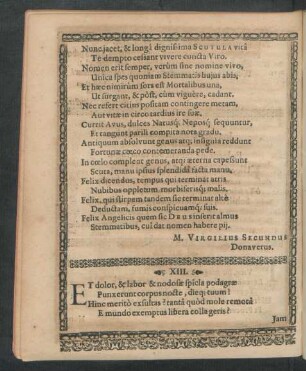 Nunc jacet, & longâ dignissima SCUTULA vitâ
Te dempto cessant vivere cuncta Viro.
Nomen erit semper, verùm sine nomine vivo,
Unica spes quoniam Stemmatis hujus abis,
Et hæc nimirum sors est Mortalibus una,
Ut surgant, & pòst, cùm viguere, cadant.
Nec refert citius positam contingere metam,
Aut vitæ in circo tardius ire suæ.
Currit Avus, dulces Natusq; Neposq; sequuntur,
Et tangunt parili computa nota gradu.
Antiquum absolvunt genus atq; insignia reddunt
Fortunæ cæco contemeranda pede.
In cœlo compleat genus, atq; æterna capessunt
Scuta, manu ipsius splendidà facta manu.
Felix dicendus, tempus qui terminat atris
Nubibus oppletum, morbiferisq; malis,
Felix, qui stirpem tandem sic terminat alto
Deductam, fumis conspicuamq; suis.
Felix Angelicis quem sic DEUS inserit almus
Stemmatibus, cui dat nomen habere pij.
M. VIRGILIUS SECUNDUS
Donaverus.
XIII.
ET dolor, & labor & nodosæ spicla podagræ
Punxerunt corpus nocte, dieq; tuum?
Hinc meritò exsultas? tantâ quòd mole remotâ
E mundo exemptus libera colla geris?
Jam